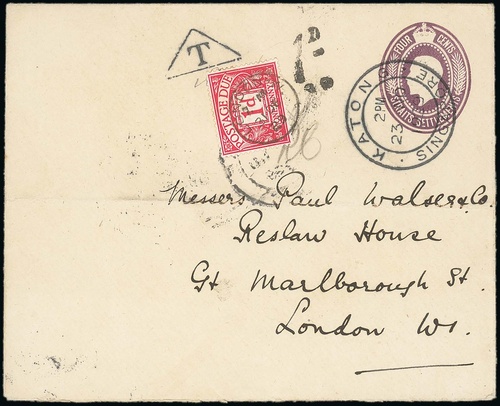 T
1D
FOUR CENTS
STRAITS SETTLEMENTS
POSTAGE DUE
1D
KATONG
2 PM
23
SINGAPORE
Messers Paul Walser & Co.
Reslaw House
Gt Marlborough St.
London W1.